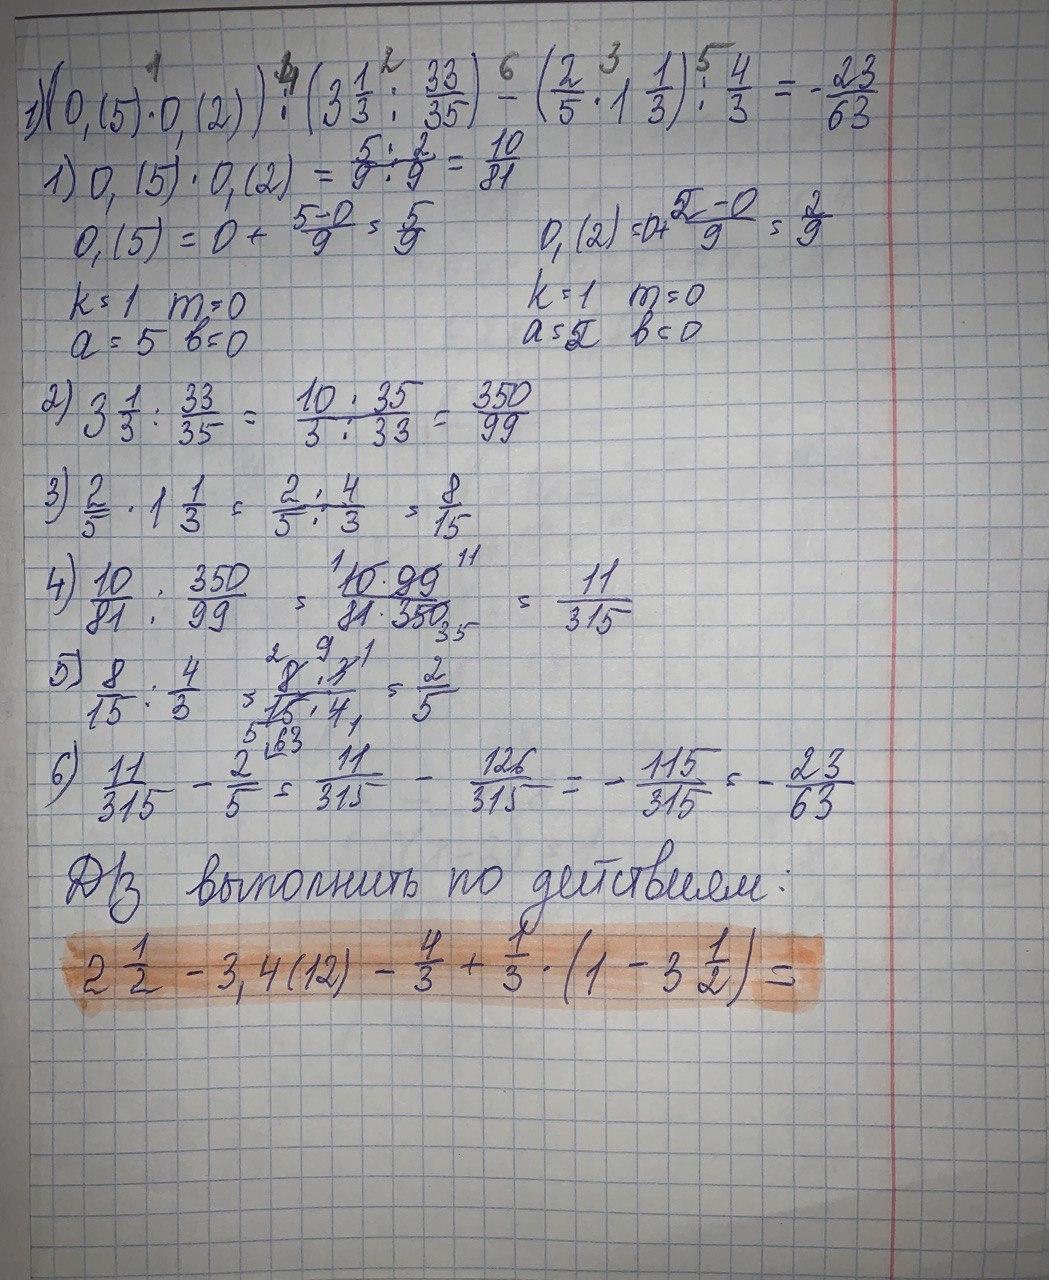 1 4 2 6 3 5
1) (0,(5)·0,(2)) : (3 1/3 : 33/35) - (2/5 · 1 1/3) : 4/3 = - 23/63
1) 0,(5)·0,(2) = 5/9 · 2/9 = 10/81
0,(5) = 0 + 5-0/9 = 5/9 0,(2) = 0+ 2-0/9 = 2/9
k=1 m=0 k=1 m=0
a=5 b=0 a=2 b=0
2) 3 1/3 : 33/35 = 10·35/3·33 = 350/99
3) 2/5 · 1 1/3 = 2·4/5·3 = 8/15
4) 10/81 : 350/99 = 1 10·99 11/81·350 35 = 11/315
5) 8/15 : 4/3 = 2 8·3 1/5 15·4 1 = 2/5
6) 11/315 - 2/5 = 11/315 - 126/315 = - 115/315 = - 23/63
Д/З выполнить по действиям:
2 1/2 - 3,4(12) - 4/3 + 1/3 · (1 - 3 1/2) =